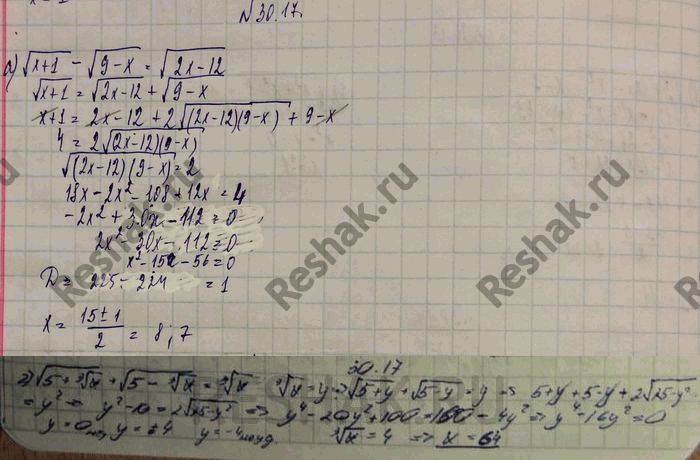 №30.17.
а) √x+1 − √9−x = √2x−12
√x+1 = √2x−12 + √9−x
x+1 = 2x−12 + 2√(2x−12)(9−x) + 9−x
4 = 2√(2x−12)(9−x)
√(2x−12)(9−x) = 2
18x − 2x² − 108 + 12x = 4
−2x² + 30x − 112 = 0
2x² − 30x − 112 = 0
x² − 15x − 56 = 0
D = 225 − 224 = 1
x = 15±1 / 2 = 8; 7
30.17
√5+∛x + √5−∛x = ∛x ∛x = y ⇒ √5+y + √5−y = y ⇒ 5+y+5−y+2√25−y²
= y² ⇒ y²−10 = 2√25−y² ⇒ y⁴−20y²+100 = 100−4y² ⇒ y⁴−16y² = 0
y = 0 y = ±4 y = −4 ∛x = 4 ⇒ x = 64
Reshak.ru
Reshak.ru